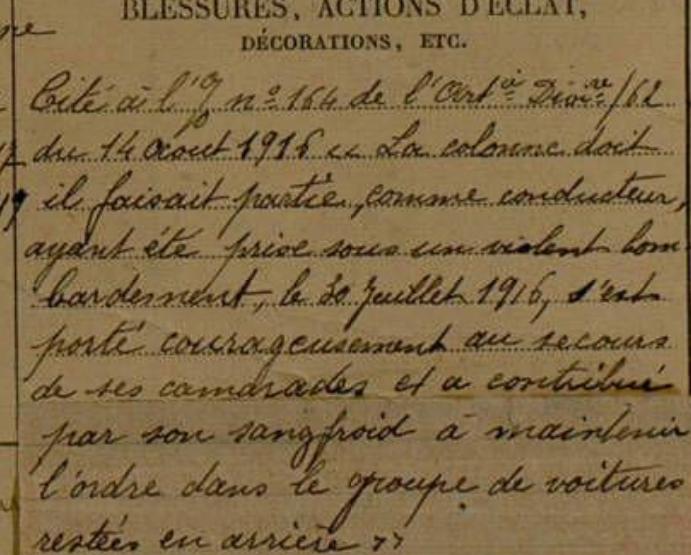 BLESSURES, ACTIONS D'ÉCLAT,
DÉCORATIONS, ETC.
Cité à l'O n° 164 de l'Artie Divre/62
du 14 Aout 1916 « La colonne doit
il faisait partie, comme conducteur,
ayant été prise sous un violent bom
bardement, le 30 Juillet 1916, s'est
porté courageusement au secours
de ses camarades et a contribué
par son sangfroid à maintenir
l'ordre dans le groupe de voitures
restées en arrière »